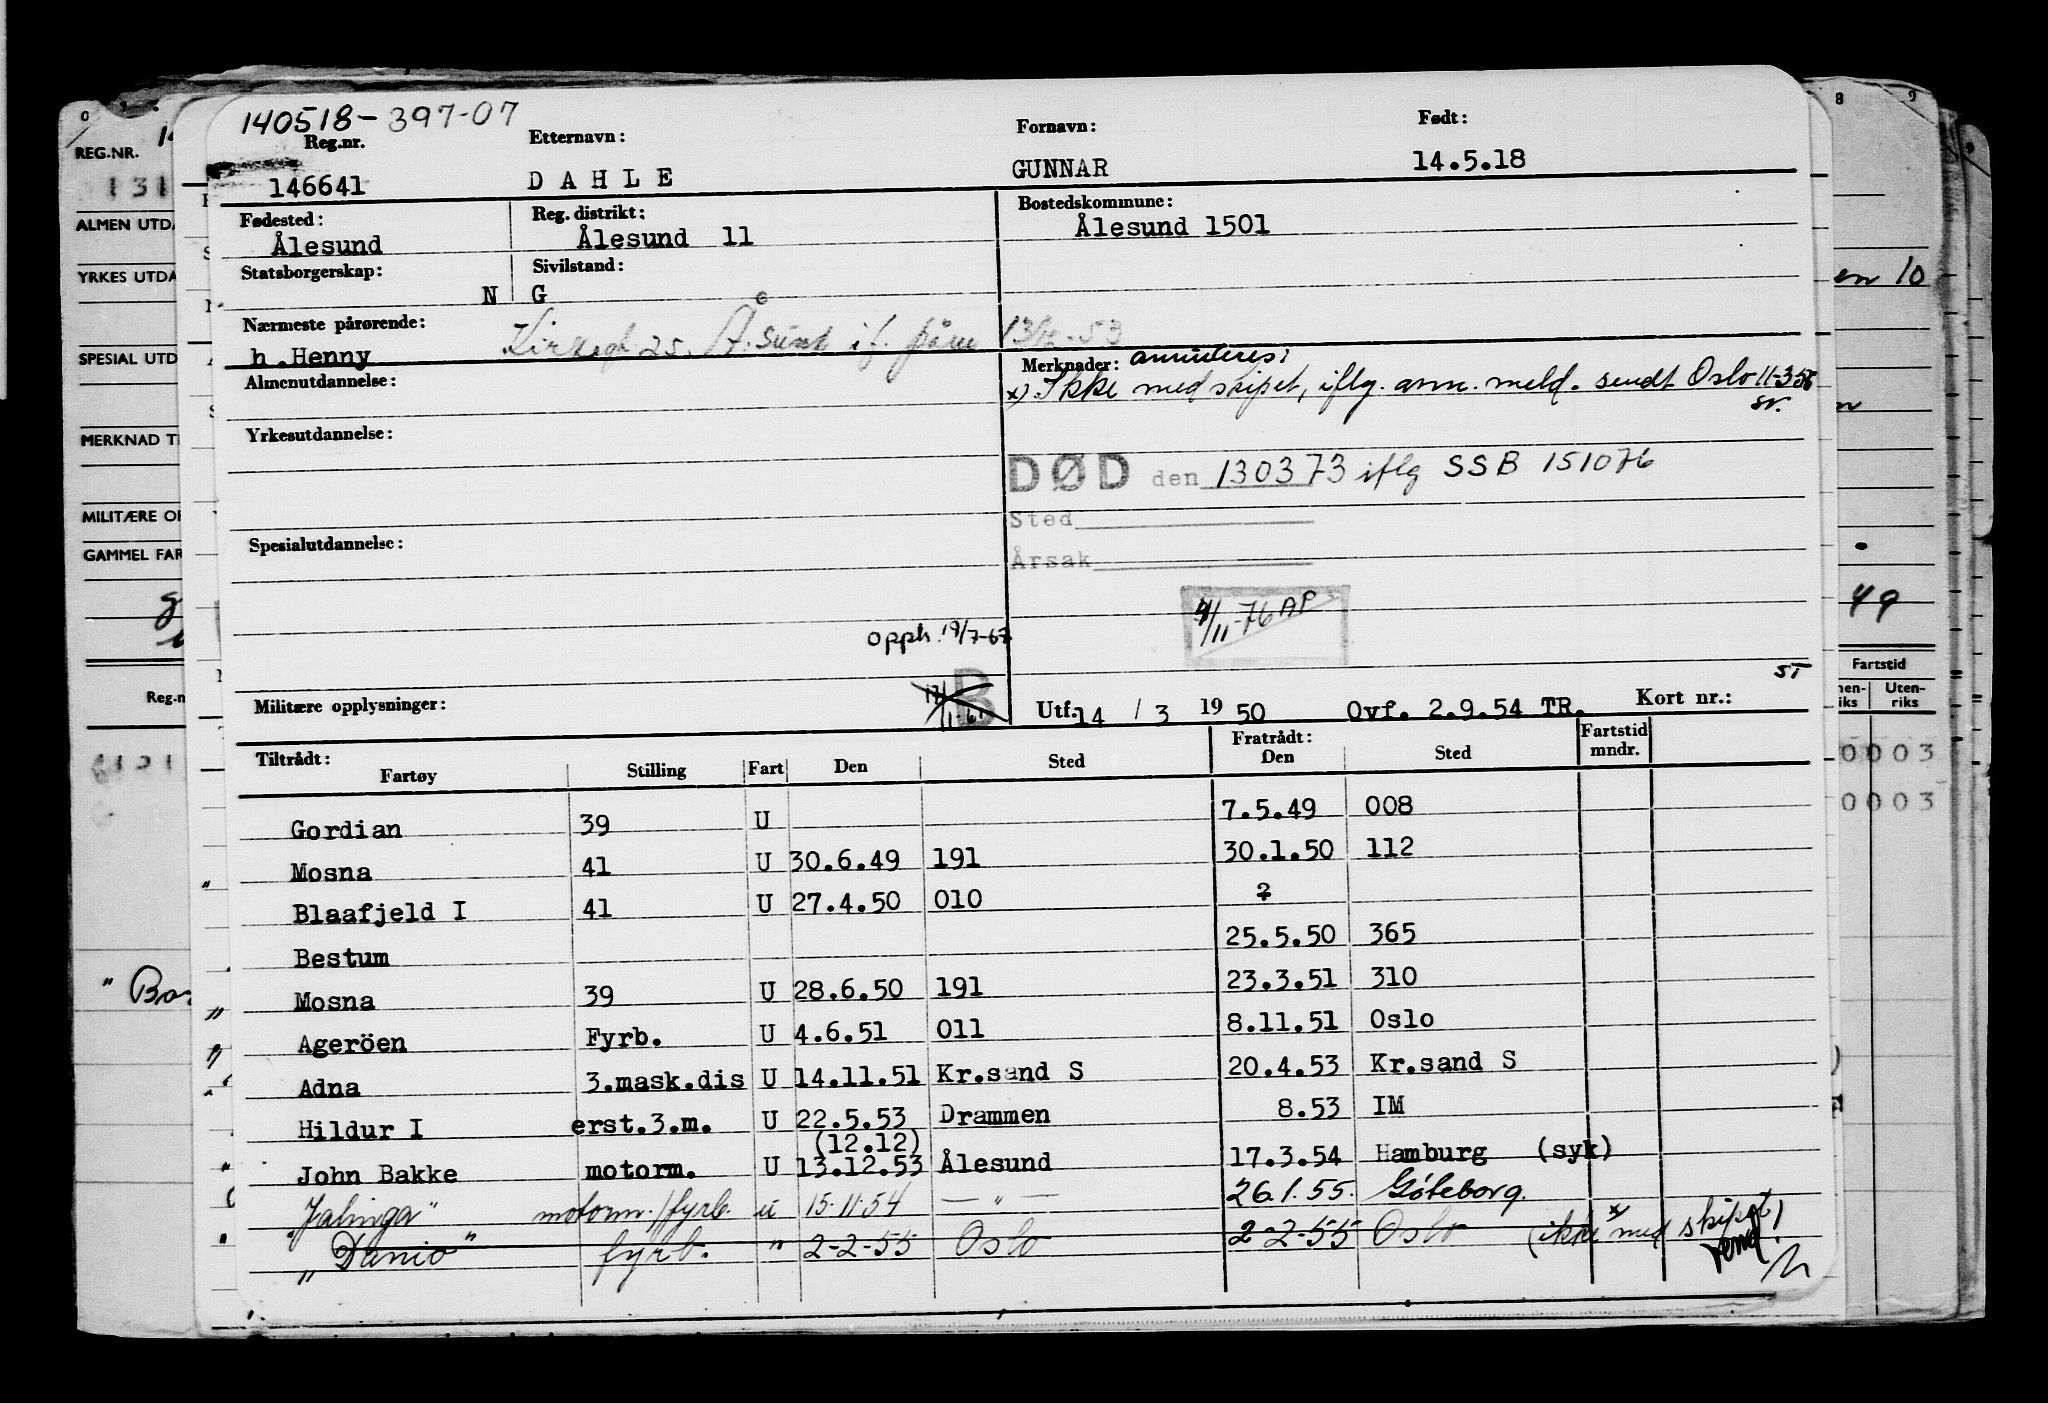 140518-397-07
Reg.nr. Etternavn: Fornavn: Født:
146641 DAHLE GUNNAR 14.5.18
Fødested: Reg. distrikt: Bostedskommune:
Ålesund Ålesund 11 Ålesund 1501
Statsborgerskap: Sivilstand:
N G
Nærmeste pårørende:
h.Henny 25. 13/12-53
Almenutdannelse: Merknader: annulleres:
x) Ikke med skipet, iflg. ann. meld. sendt Oslo 11-3-55
sv.
Yrkesutdannelse:
DØD den 130373 iflg SSB 151076
Sted
Spesialutdannelse:
Årsak
4/11-76 AP
opph. 19/7-67
B
ST
Militære opplysninger: Utf. 14 / 3 1950 Ovf. 2.9.54 TR. Kort nr.:
Tiltrådt: Fratrådt: Fartstid
Fartøy Stilling Fart Den Sted Den Sted mndr.
Gordian 39 U 7.5.49 008
Mosna 41 U 30.6.49 191 30.1.50 112
Blaafjeld I 41 U 27.4.50 010 ?
Bestum 25.5.50 365
Mosna 39 U 28.6.50 191 23.3.51 310
Ageröen Fyrb. U 4.6.51 011 8.11.51 Oslo
Adna 3.mask.dis U 14.11.51 Kr.sand S 20.4.53 Kr.sand S
Hildur I erst.3.m. U 22.5.53 Drammen 8.53 IM
(12.12)
John Bakke motorm. U 13.12.53 Ålesund 17.3.54 Hamburg (syk)
"Jalinga" motorm./fyrb. u 15.11.54 — " — 26.1.55. Göteborg.
"Danio" fyrb. " 2-2-55 Oslo 2-2-55 Oslo (ikke x) med skipet!
REG.NR.
131
ALMEN UTDA
YRKES UTDA
SPESIAL UTD
MERKNAD T
MILITÆRE OP
GAMMEL FAR
Reg.n
8 9
en 10
49
Fartstid
Uten-
riks
0003
0003